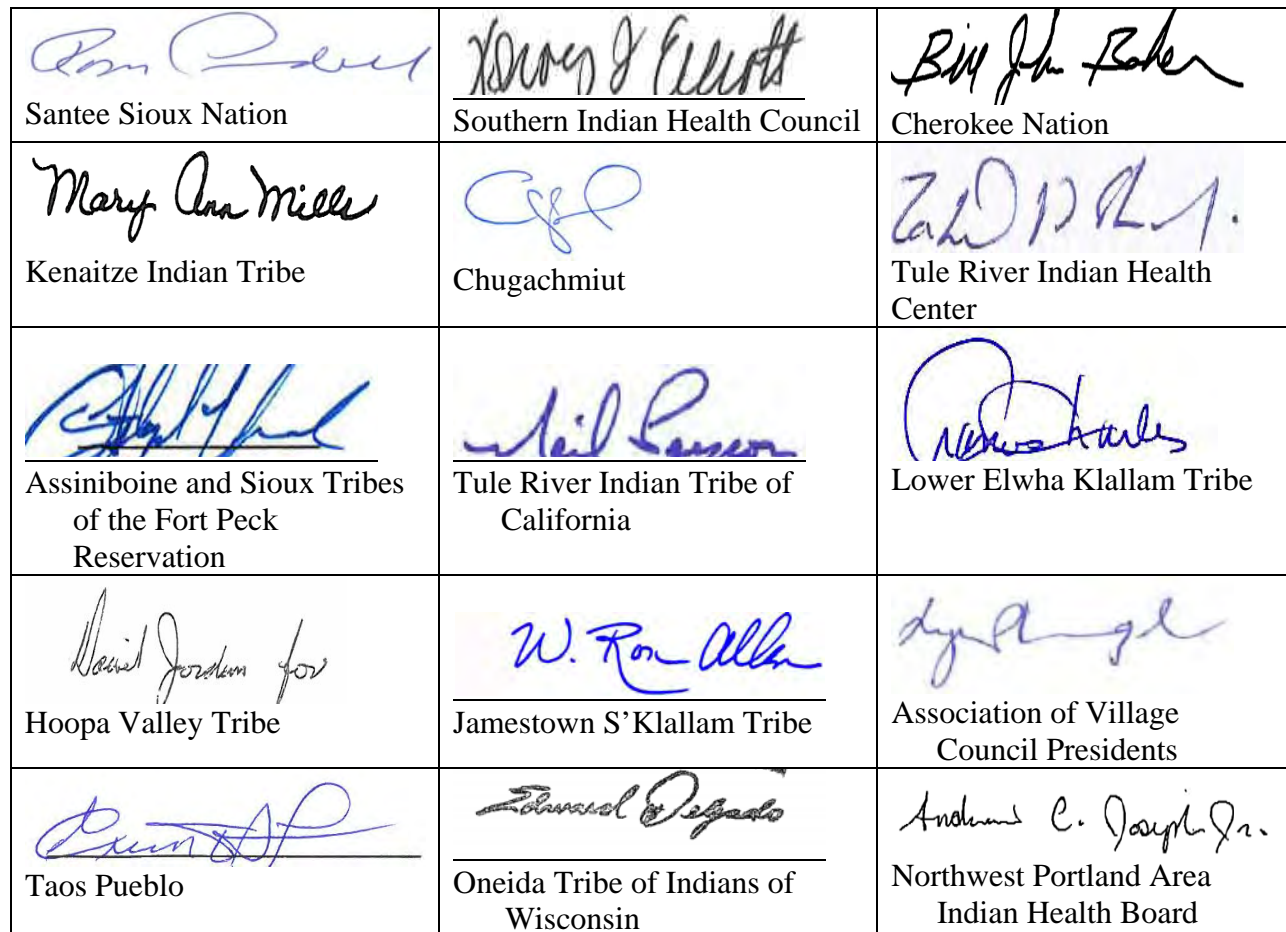 Santee Sioux Nation
Southern Indian Health Council
Bill John Baker
Cherokee Nation
Mary Ann Mills
Kenaitze Indian Tribe
Chugachmiut
Tule River Indian Health
Center
Assiniboine and Sioux Tribes
of the Fort Peck
Reservation
Neil
Tule River Indian Tribe of
California
Charles
Lower Elwha Klallam Tribe
David Jordan for
Hoopa Valley Tribe
W. Ron Allen
Jamestown S’Klallam Tribe
Association of Village
Council Presidents
Taos Pueblo
Edward Delgado
Oneida Tribe of Indians of
Wisconsin
Andrew C. Joseph Jr.
Northwest Portland Area
Indian Health Board